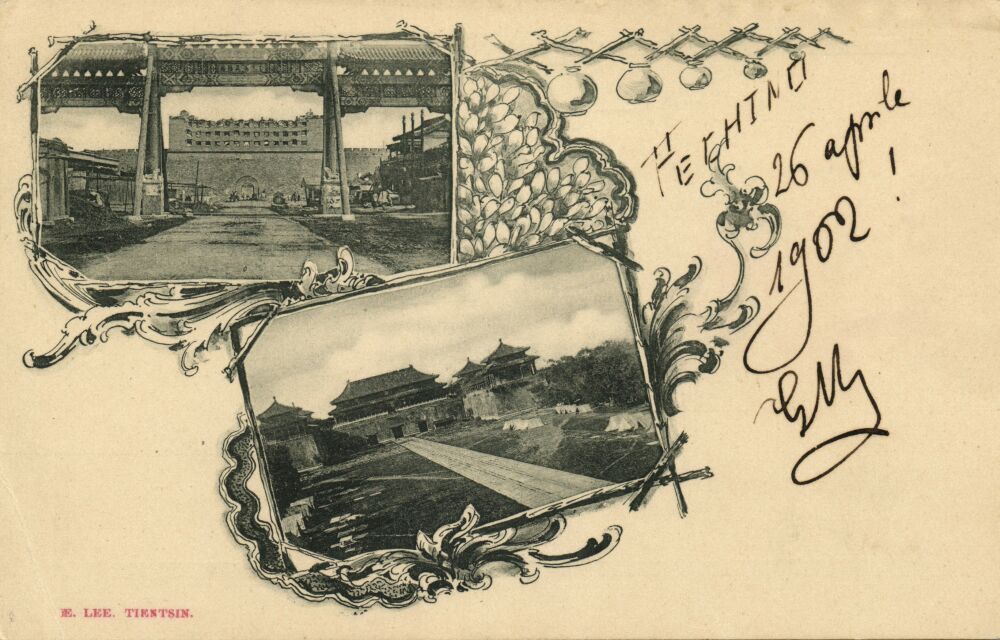 PECHINO
26 aprile
1902 !
E. LEE. TIENTSIN.